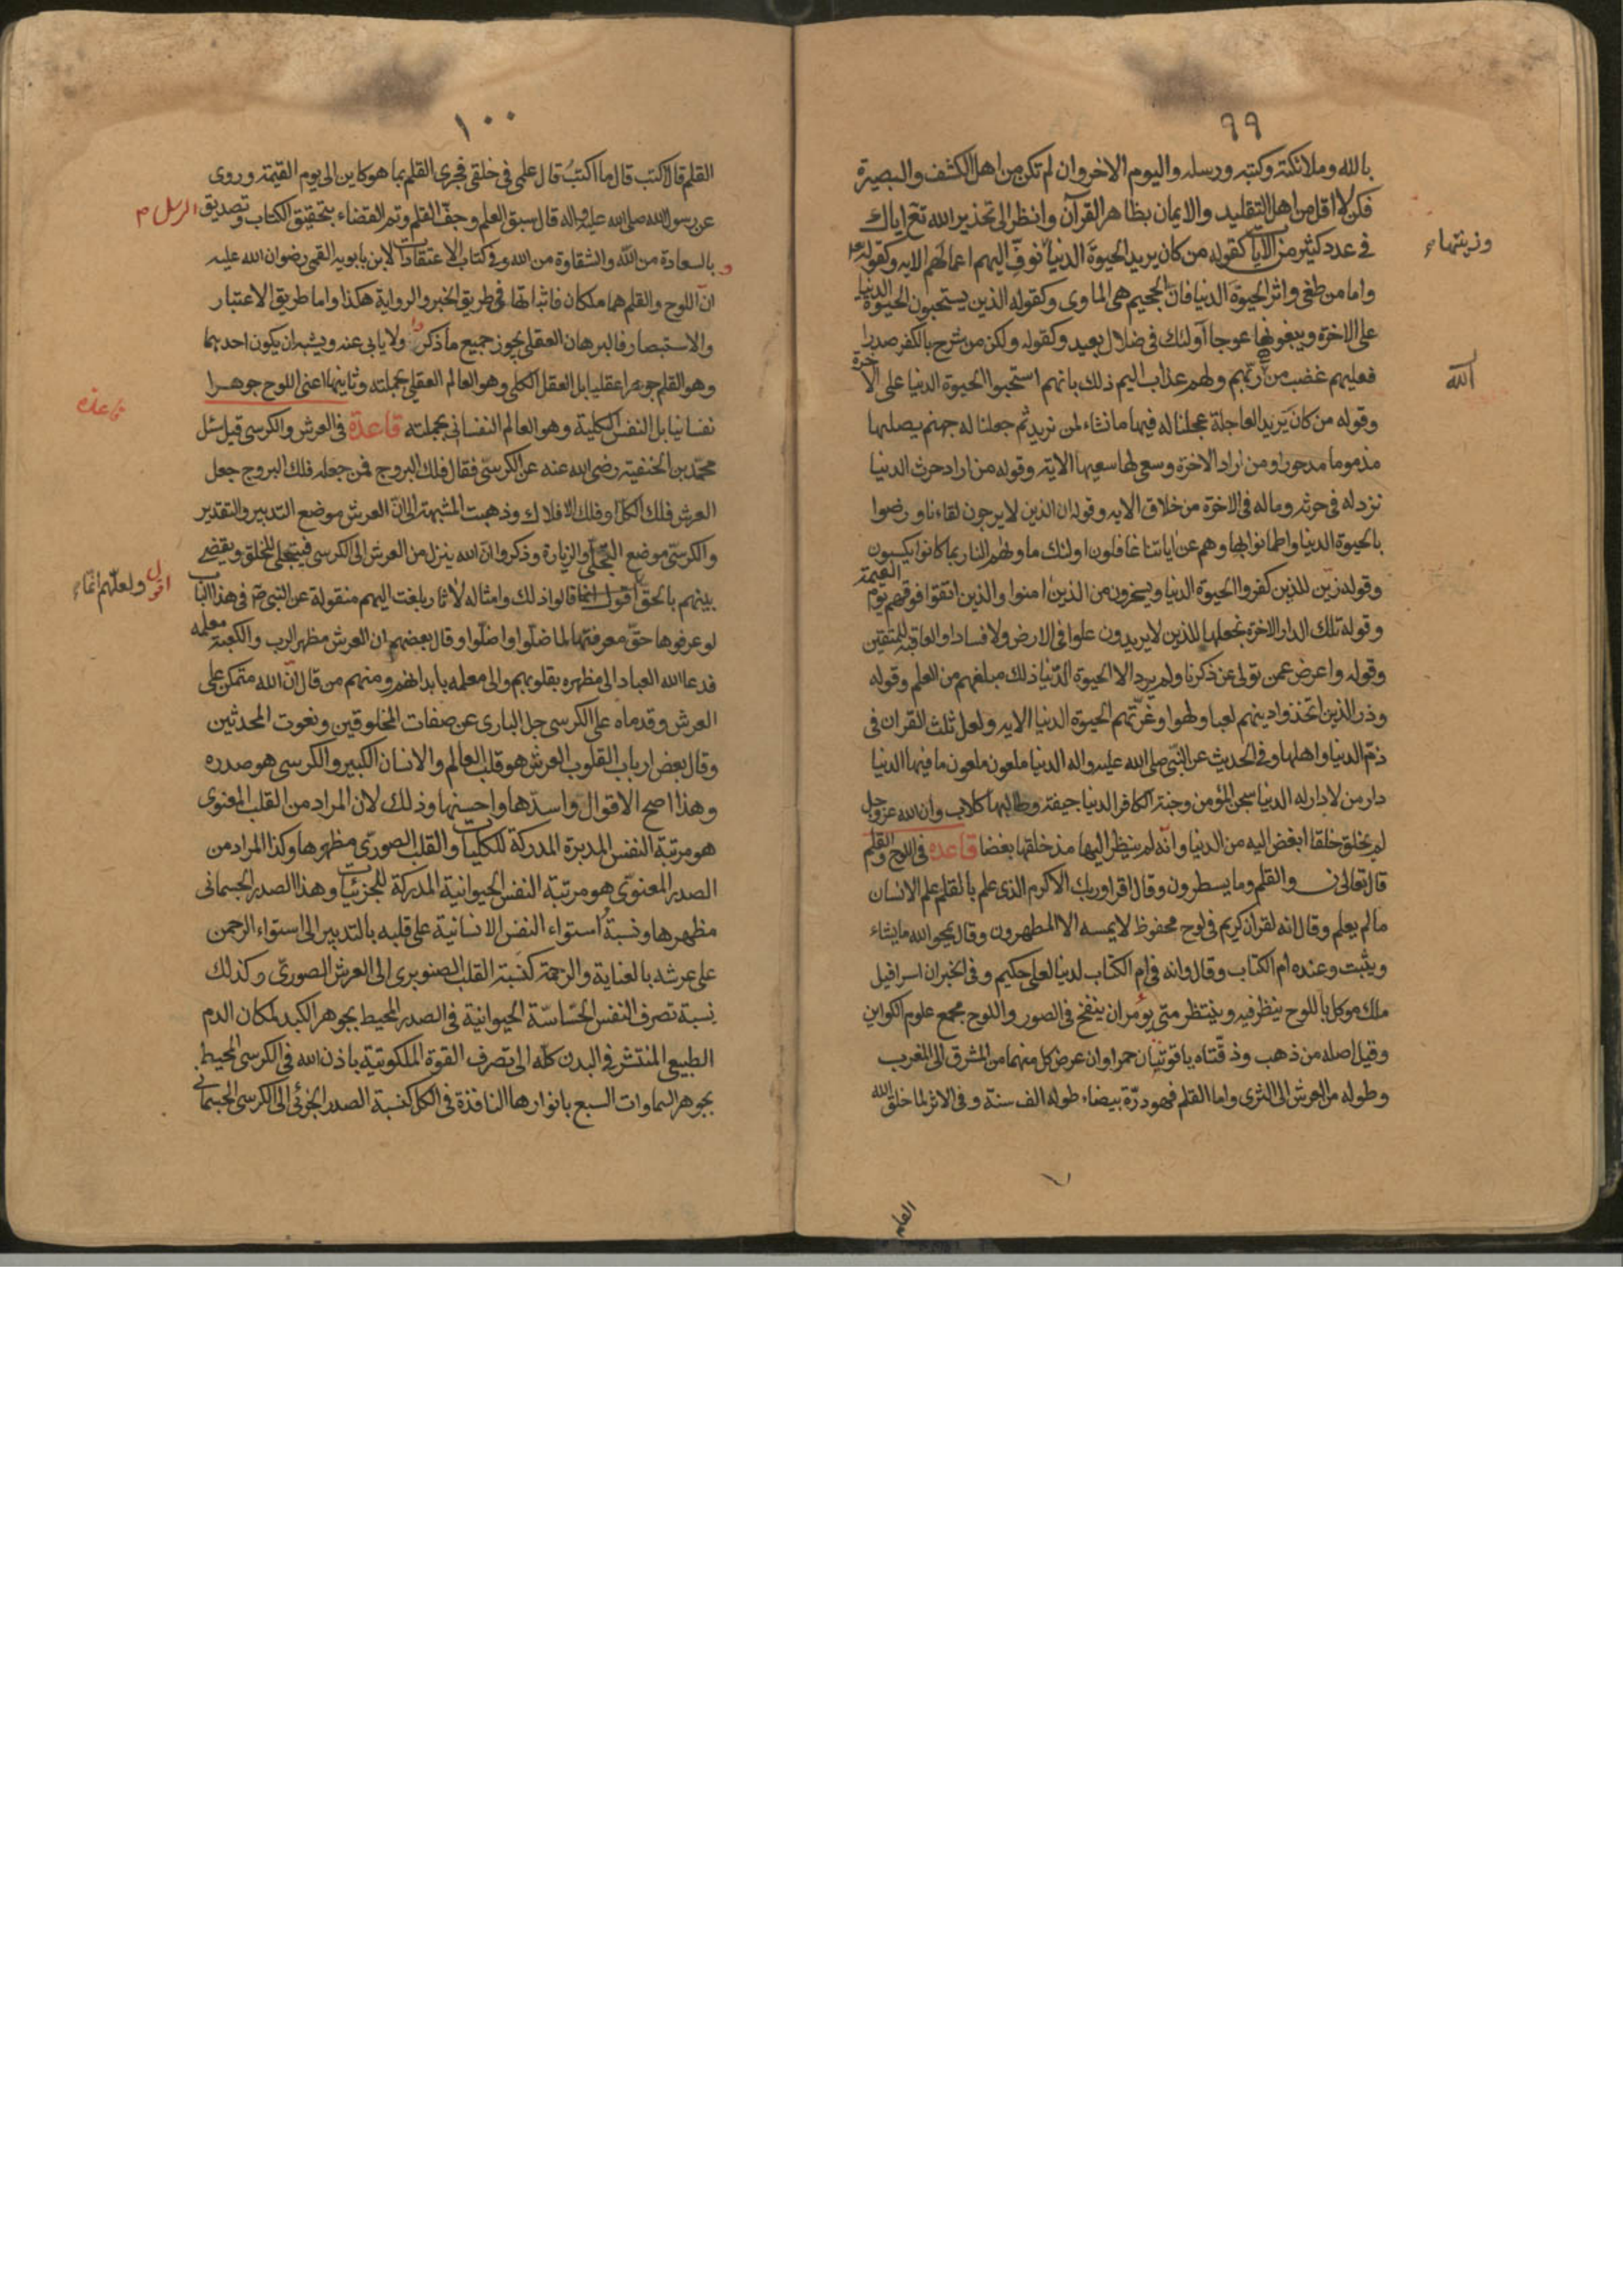 ٩٩
بالله وملائكته وكتبه ورسله واليوم الاخر وان لم تكن من اهل الكشف والبصيرة
فلن لا اقل من اهل التقليد والايمان بظاهر القرآن وانظر الى تحذير الله تع اياك
في عدد كثير من الايات كقوله من كان يريد الحيوة الدنيا نوف اليهم اعمالهم الايه وكقوله
وزينتها
واما من طغى واثر الحيوة الدنيا فان الجحيم هي الماوى وكقوله الذين يستحبون الحيوة الدنيا
على الاخرة ويبغونها عوجا اولئك في ضلال بعيد وكقوله ولكن من شرح بالكفر صدرا
فعليهم غضب من ربهم ولهم عذاب اليم ذلك بانهم استحبوا الحيوة الدنيا على الاخرة
الله
وقوله من كان يريد العاجلة عجلنا له فيها ما نشاء لمن نريد ثم جعلنا له جهنم يصليها
مذموما مدحورا ومن اراد الاخرة وسعى لها سعيها الاية وقوله من اراد حرث الدنيا
نزد له في حرثه وماله في الاخرة من خلاق الايه وقوله ان الذين لا يرجون لقاءنا ورضوا
بالحيوة الدنيا واطمانوا بها وهم عن اياتنا غافلون اولئك ماويهم النار بما كانوا يكسبون
وقوله زين للذين كفروا الحيوة الدنيا ويسخرون من الذين امنوا والذين اتقوا فوقهم يوم القيمة
وقوله تلك الدار الاخرة نجعلها للذين لا يريدون علوا في الارض ولا فسادا والعاقبة للمتقين
وقوله واعرض عمن تولى عن ذكرنا ولم يرد الا الحيوة الدنيا ذلك مبلغهم من العلم وقوله
وذر الذين اتخذوا دينهم لعبا ولهوا وغرتهم الحيوة الدنيا الايه ولعل ثلث القران في
ذم الدنيا واهلها وفي الحديث عن النبي صلى الله عليه واله الدنيا ملعون ملعون ما فيها الدنيا
دار من لا دار له الدنيا سجن المؤمن وجنة الكافر الدنيا جيفة وطالبها كلاب وان الله عز وجل
لم يخلق خلقا ابغض اليه من الدنيا وانه لم ينظر اليها مذ خلقها بغضا قاعده في اللوح والقلم
قال تعالى ن والقلم وما يسطرون وقال اقرا وربك الاكرم الذي علم بالقلم علم الانسان
ما لم يعلم وقال انه لقران كريم في لوح محفوظ لا يمسه الا المطهرون وقال يمحو الله ما يشاء
ويثبت وعنده ام الكتاب وقال وانه في ام الكتاب لدينا لعلي حكيم وفي الخبر ان اسرافيل
ملك موكل باللوح ينظر فيه وينتظر متى يؤمر ان ينفخ في الصور واللوح مجمع علوم الكواين
وقيل اصله من ذهب وذفتاه ياقوتتان حمرا وان عرض كل منهما من المشرق الى المغرب
وطوله من العرش الى الثرى واما القلم فهو درة بيضاء طوله الف سنة وفي الاثر لما خلق الله
القلم
١٠٠
القلم قال اكتب قال ما اكتب قال علمي في خلقي فجرى القلم بما هو كاين الى يوم القيمة وروى
عن رسول الله صلى الله عليه واله قال سبق العلم وجف القلم وتم القضاء بتحقيق الكتاب وتصديق الرسل م
و بالسعادة من الله والشقاوة من الله وفي كتاب الاعتقادات لابن بابويه القمي رضوان الله عليه
ان اللوح والقلم هما ملكان فاثباتها في طريق الخبر والرواية هكذا واما طريق الاعتبار
والاستبصار فالبرهان العقلي يجوز جميع ما ذكر ولا يابى عنه ويشبه ان يكون احدهما
وهو القلم جوهرا عقليا بل العقل الكلي وهو العالم العقلي بجملته وثانيهما اعني اللوح جوهرا
قاعده
نفسانيا بل النفس الكلية وهو العالم النفساني بجملته قاعدة في العرش والكرسي قيل سئل
محمد بن الحنفية رضي الله عنه عن الكرسي فقال فلك البروج فمن جعله فلك البروج جعل
العرش فلك الكل وفلك الافلاك وذهبت المشبهة الى ان العرش موضع التدبير والتقدير
والكرسي موضع التجلي والزيارة وذكروا ان الله ينزل من العرش الى الكرسي فيتجلى للخلق ويقضي
بينهم بالحق اقول انما قالوا ذلك وامثاله لاثار بلغت اليهم منقولة عن النبي ص في هذا الباب
اقول ولعلهم انما
لو عرفوها حق معرفتها لما ضلوا واضلوا وقال بعضهم ان العرش مظهر الرب والكعبة معلمه
فدعا الله العباد الى مظهره بقلوبهم والى معلمه بابدانهم ومنهم من قال ان الله متمكن على
العرش وقدماه على الكرسي جل الباري عن صفات المخلوقين ونعوت المحدثين
وقال بعض ارباب القلوب العرش هو قلب العالم والانسان الكبير والكرسي هو صدره
وهذا اصح الاقوال واسدها واحسنها وذلك لان المراد من القلب المعنوي
هو مرتبة النفس المدبرة المدركة للكليات والقلب الصوري مظهرها وكذا المراد من
الصدر المعنوي هو مرتبة النفس الحيوانية المدركة للجزئيات وهذا الصدر الجسماني
مظهرها ونسبة استواء النفس الانسانية على قلبه بالتدبير الى استواء الرحمن
على عرشه بالعناية والرحمة كنسبة القلب الصنوبري الى العرش الصوري وكذلك
نسبة تصرف النفس الحساسة الحيوانية في الصدر المحيط بجوهر الكبد لمكان الدم
الطبيعي المنتشر في البدن كله الى تصرف القوة الملكوتية باذن الله في الكرسي المحيط
بجوهر السماوات السبع بانوارها النافذة في الكل كنسبة الصدر الجزئي الى الكرسي الجسماني